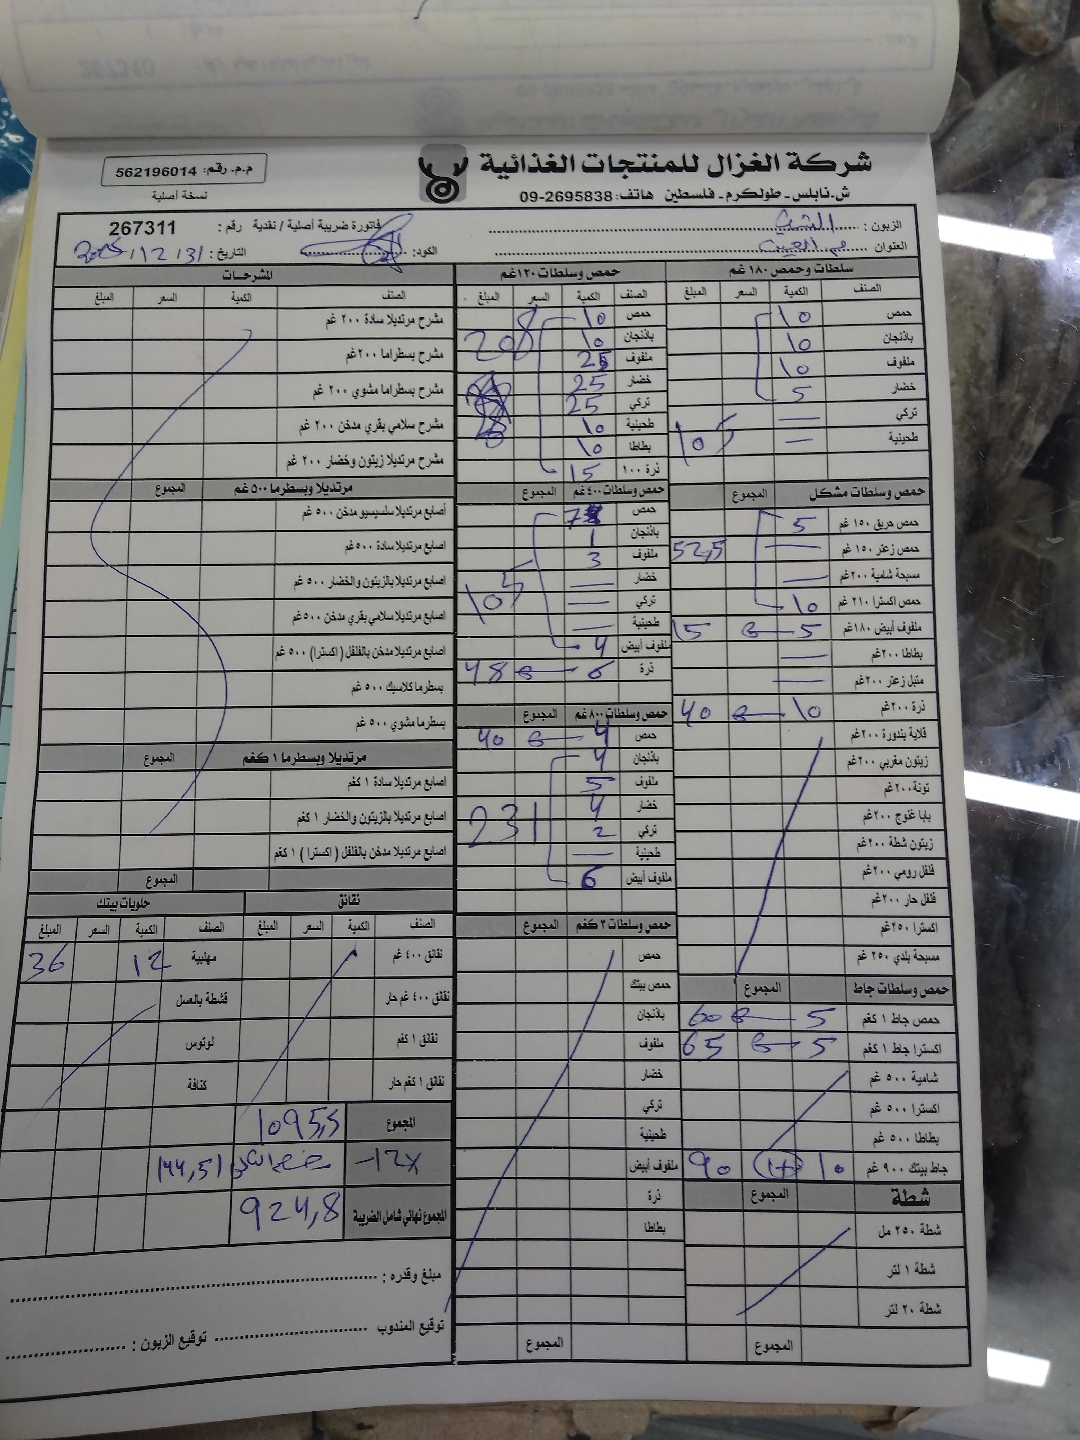 شركة الغزال للمنتجات الغذائية
ش.نابلس - طولكرم - فلسطين هاتف: 09-2695838
م.م. رقم: 562196014
نسخة أصلية
الزبون:
فاتورة ضريبية أصلية / نقدية رقم: 267311
العنوان
الكود:
التاريخ: 31/12/2025
سلطات وحمص ١٨٠ غم
الصنف الكمية السعر المبلغ
حمص 10
باذنجان 10
ملفوف 10
خضار 5
تركي —
طحينية — 105
حمص وسلطات مشكل المجموع
حمص حريق ١٥٠ غم 5
حمص زعتر ١٥٠ غم — 52,5
مسبحة شامية ٢٠٠غم —
حمص اكسترا ٢١٠ غم 10
ملفوف أبيض ١٨٠غم 5 15
بطاطا ٢٠٠غم —
متبل زعتر ٢٠٠غم —
ذرة ٢٠٠غم 10 40
قلاية بندورة ٢٠٠غم
زيتون مغربي ٢٠٠غم
تونة ٢٠٠غم
بابا غنوج ٢٠٠غم
زيتون شطة ٢٠٠غم
فلفل رومي ٢٠٠غم
فلفل حار ٢٠٠غم
اكسترا ٢٥٠غم
مسبحة بلدي ٢٥٠ غم
حمص وسلطات جاط المجموع
حمص جاط ١ كغم 5 60
اكسترا جاط ١ كغم 5 65
شامية ٥٠٠ غم
اكسترا ٥٠٠ غم
بطاطا ٥٠٠ غم
جاط بيتك ٩٠٠ غم 10 90
شطة المجموع
شطة ٢٥٠ مل
شطة ١ لتر
شطة ٢٠ لتر
المجموع
حمص وسلطات ١٢٠غم
الصنف الكمية السعر المبلغ
حمص 10
باذنجان 10 208
ملفوف 25
خضار 25
تركي 25
طحينية 10
بطاطا 10
ذرة ١٠٠ 15
حمص وسلطات ٤٠٠غم المجموع
حمص
باذنجان 1
ملفوف 3
خضار —
تركي — 105
طحينية —
ملفوف أبيض 4
ذرة 6 48
حمص وسلطات ٨٠٠ غم المجموع
حمص 4 40
باذنجان 4
ملفوف 5
خضار 4
تركي 2 231
طحينية —
ملفوف أبيض 6
حمص وسلطات ٣ كغم المجموع
حمص
حمص بيتك
باذنجان
ملفوف
خضار
تركي
طحينية
ملفوف أبيض
ذرة
بطاطا
المجموع
المشرحات
الصنف الكمية السعر المبلغ
مشرح مرتديلا سادة ٢٠٠ غم
مشرح بسطراما ٢٠٠غم
مشرح بسطراما مشوي ٢٠٠ غم
مشرح سلامي بقري مدخن ٢٠٠ غم
مشرح مرتديلا زيتون وخضار ٢٠٠ غم
مرتديلا وبسطرما ٥٠٠ غم المجموع
أصابع مرتديلا سلسيسيو مدخن ٥٠٠ غم
اصابع مرتديلا سادة ٥٠٠غم
اصابع مرتديلا بالزيتون والخضار ٥٠٠ غم
اصابع مرتديلا سلامي بقري مدخن ٥٠٠غم
اصابع مرتديلا مدخن بالفلفل (اكسترا) ٥٠٠ غم
بسطرما كلاسيك ٥٠٠ غم
بسطرما مشوي ٥٠٠ غم
مرتديلا وبسطرما ١ كغم المجموع
اصابع مرتديلا سادة ١ كغم
اصابع مرتديلا بالزيتون والخضار ١ كغم
اصابع مرتديلا مدخن بالفلفل (اكسترا) ١ كغم
المجموع
نقانق
الصنف الكمية السعر المبلغ
نقانق ٤٠٠ غم
نقانق ٤٠٠ غم حار
نقانق ١ كغم
نقانق ١ كغم حار
حلويات بيتك
الصنف الكمية السعر المبلغ
مهلبية 12 36
قشطة بالعسل
لوتوس
كنافة
المجموع 1095,5
924,8 المجموع نهائي شامل الضريبة
مبلغ وقدره:
توقيع المندوب
توقيع الزبون: